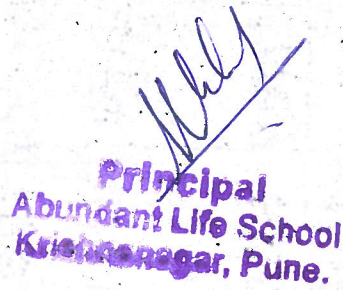 Principal
Abundant Life School
Krishnanagar, Pune.